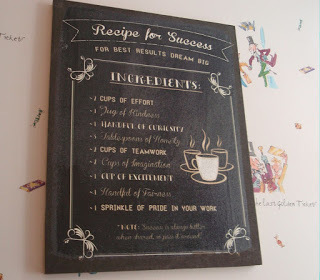 Recipe for Success
FOR BEST RESULTS DREAM BIG
INGREDIENTS:
CUPS OF EFFORT
Jug of Kindness
HANDFUL OF CURIOSITY
Tablespoons of Honesty
CUPS OF TEAMWORK
Cups of Imagination
CUP OF EXCITEMENT
Handful of Fairness
SPRINKLE OF PRIDE IN YOUR WORK
*NOTE: Success is always better
when shared, so pass it around!
Ticket"
The Last Golden Ticket"